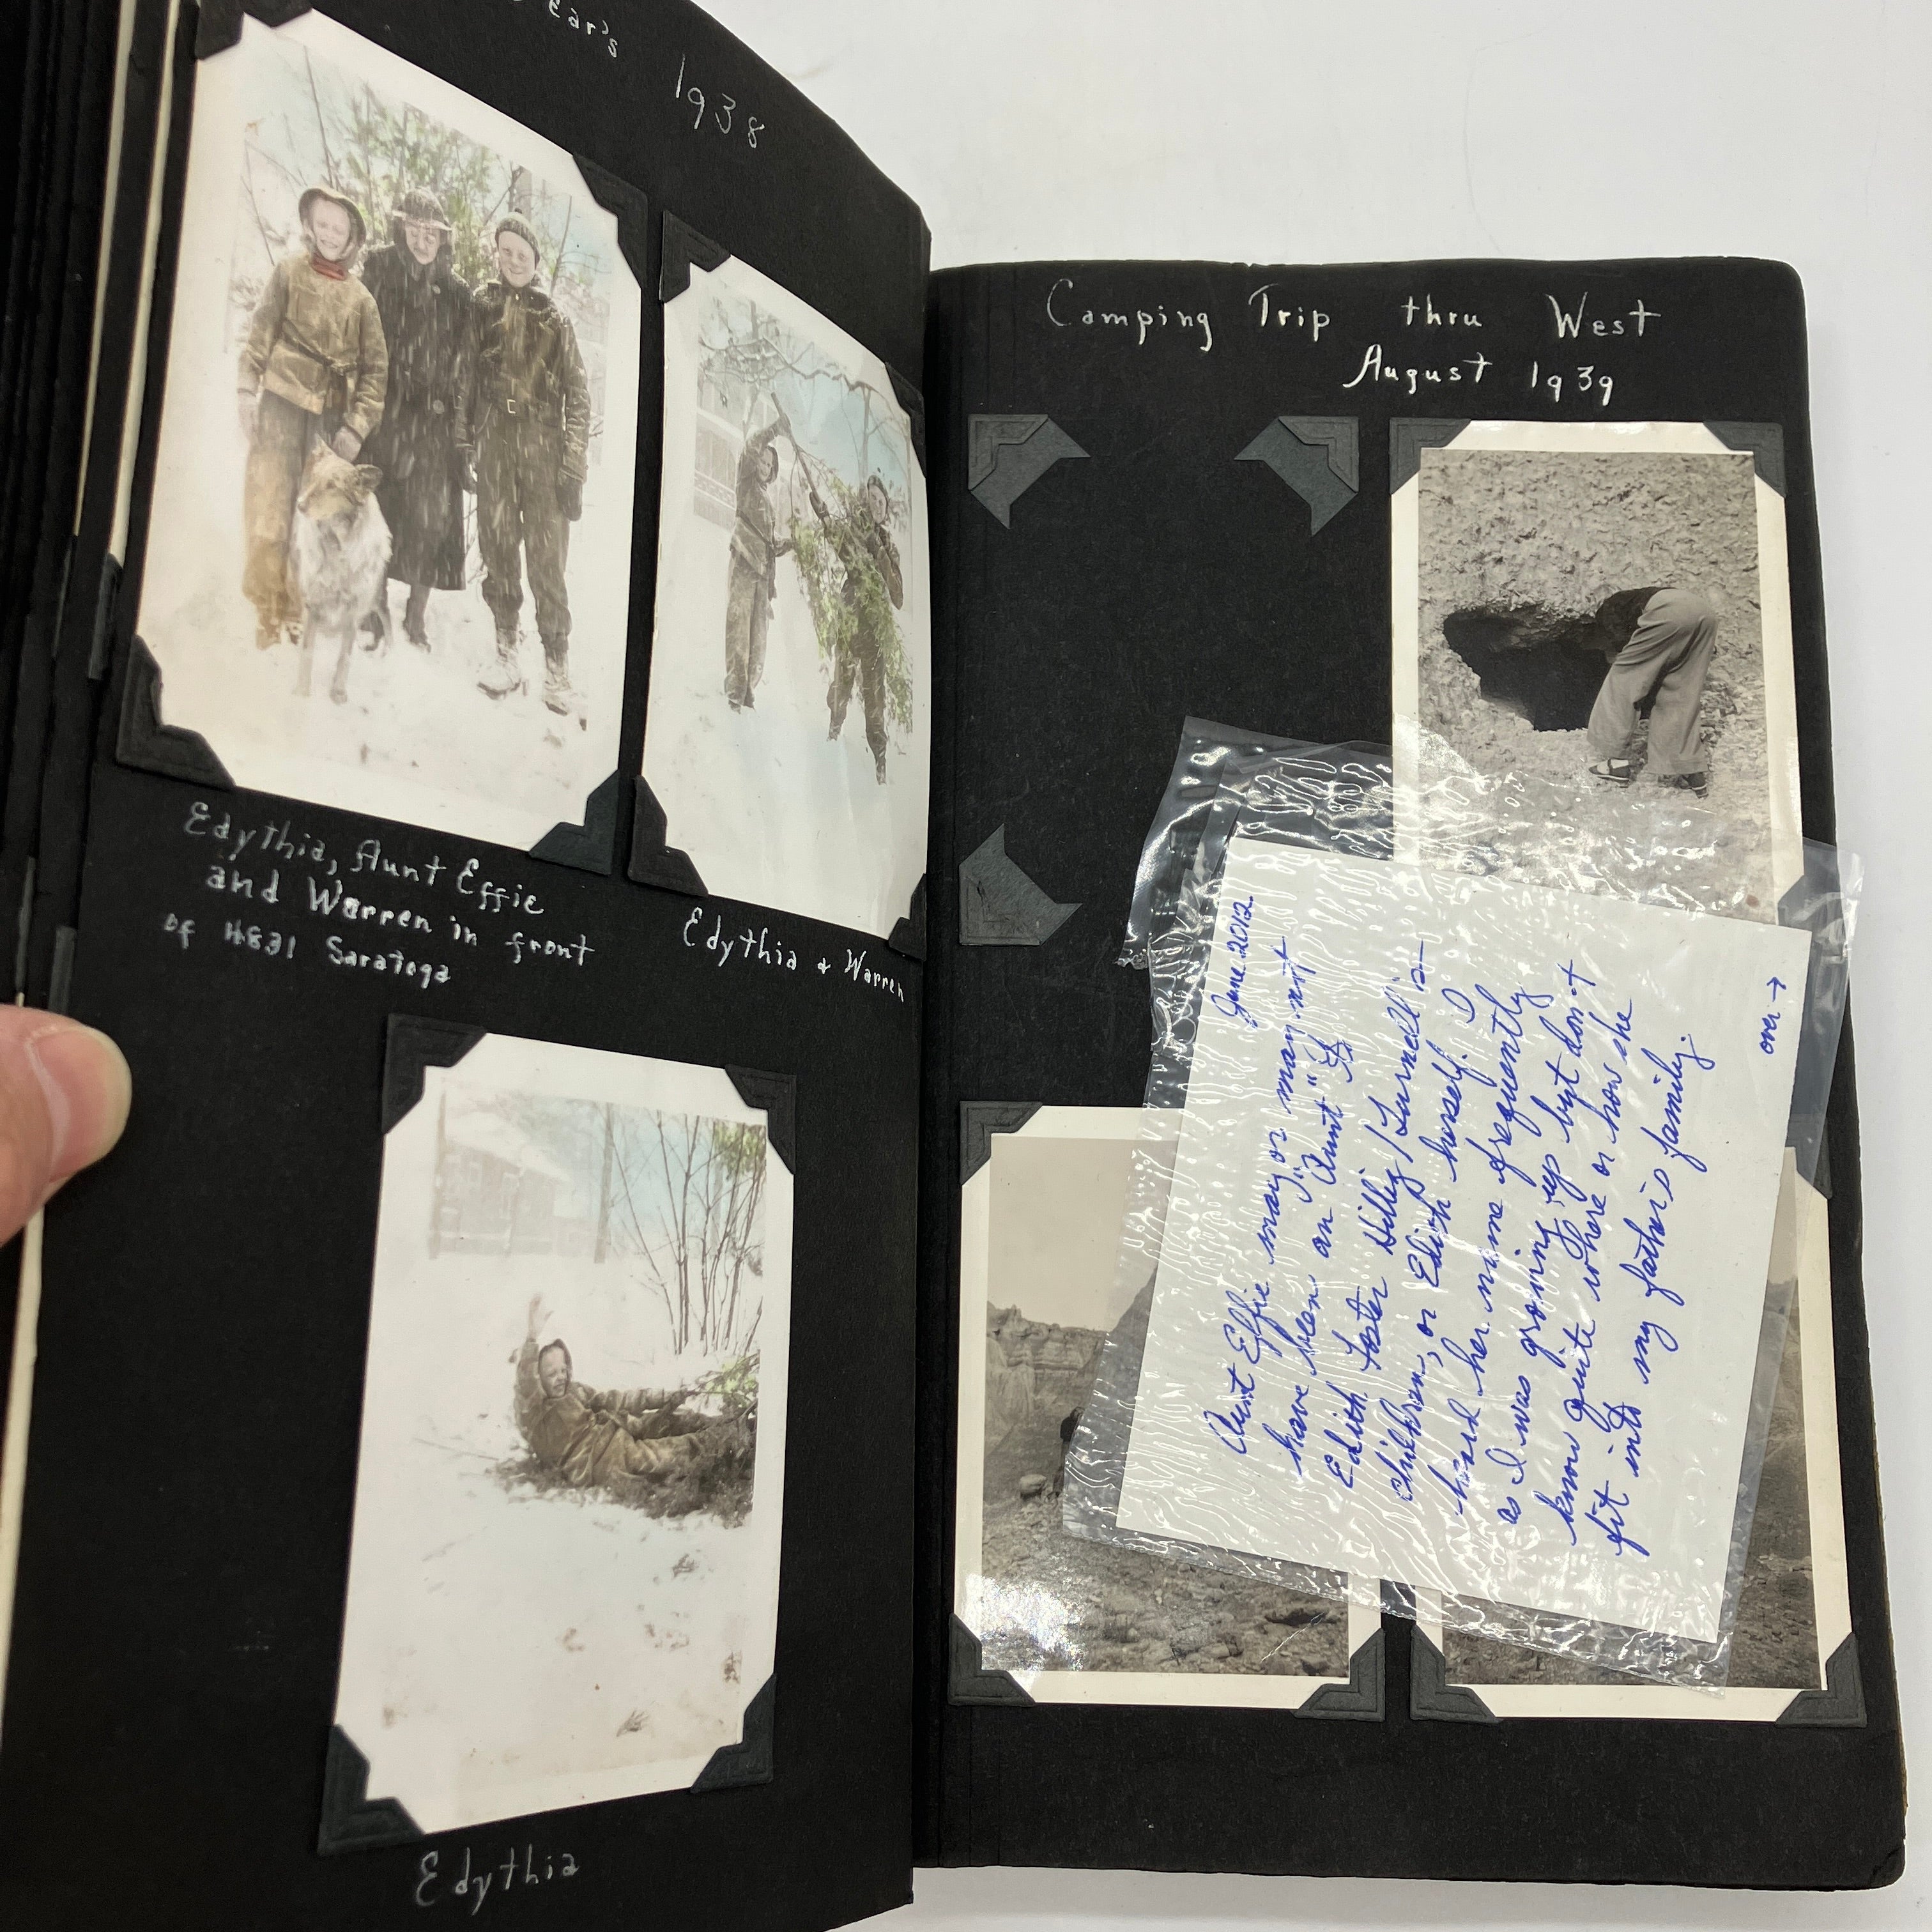 ear's 1938
Edythia, Aunt Effie
and Warren in front
of 4831 Saratoga
Edythia & Warren
Edythia
Camping Trip thru West
August 1939
June 2012
Aunt Effie may or may not
have been an "Aunt" of
Edith, foster children,
children, or Edith herself. I
heard her name frequently
as I was growing up but don't
know quite where or how she
fit into my father's family.
over →